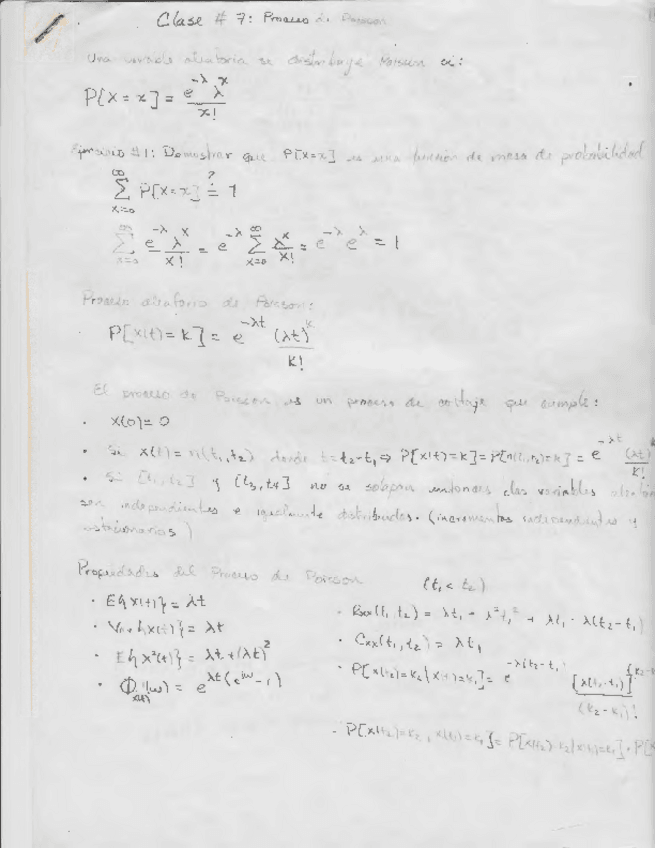 Clase # 7: Proceso de Poisson
Una variable aleatoria se distribuye Poisson si:
P[X = x] = e^{-λ} λ^x / x!
Ejercicio #1: Demostrar que P[X=x] es una función de masa de probabilidad
∑_{x=0}^{∞} P[X=x] ≟ 1
∑_{x=0}^{∞} e^{-λ} λ^x / x! = e^{-λ} ∑_{x=0}^{∞} λ^x / x! = e^{-λ} e^{λ} = 1
Proceso aleatorio de Poisson:
P[X(t) = k] = e^{-λt} (λt)^k / k!
El proceso de Poisson es un proceso de conteje que cumple:
· X(0) = 0
· Si X(t) = n(t₁, t₂) donde t = t₂ - t₁ ⇒ P[X(t) = k] = P[n(t₁, t₂) = k] = e^{-λt} (λt)^k / k!
· Si [t₁, t₂] y [t₃, t₄] no se solapan entonces las variables
son independientes e igualmente distribuidas. (incrementos independientes y
estacionarios)
Propiedades del Proceso de Poisson (t₁ < t₂)
· E{X(t)} = λt
· Var{X(t)} = λt
· E{X²(t)} = λt + (λt)²
· Φ_{X(t)}(ω) = e^{λt(e^{jω} - 1)}
· Rxx(t₁, t₂) = λt₁ + λ²t₁² + λt₁ · λ(t₂ - t₁)
· Cxx(t₁, t₂) = λt₁
· P[X(t₂) = k₂ | X(t₁) = k₁] = e^{-λ(t₂ - t₁)} [λ(t₂ - t₁)]^{(k₂ - / (k₂ - k₁)!
· P[X(t₂) = k₂, X(t₁) = k₁] = P[X(t₂) = k₂ | X(t₁) = k₁] · P[X